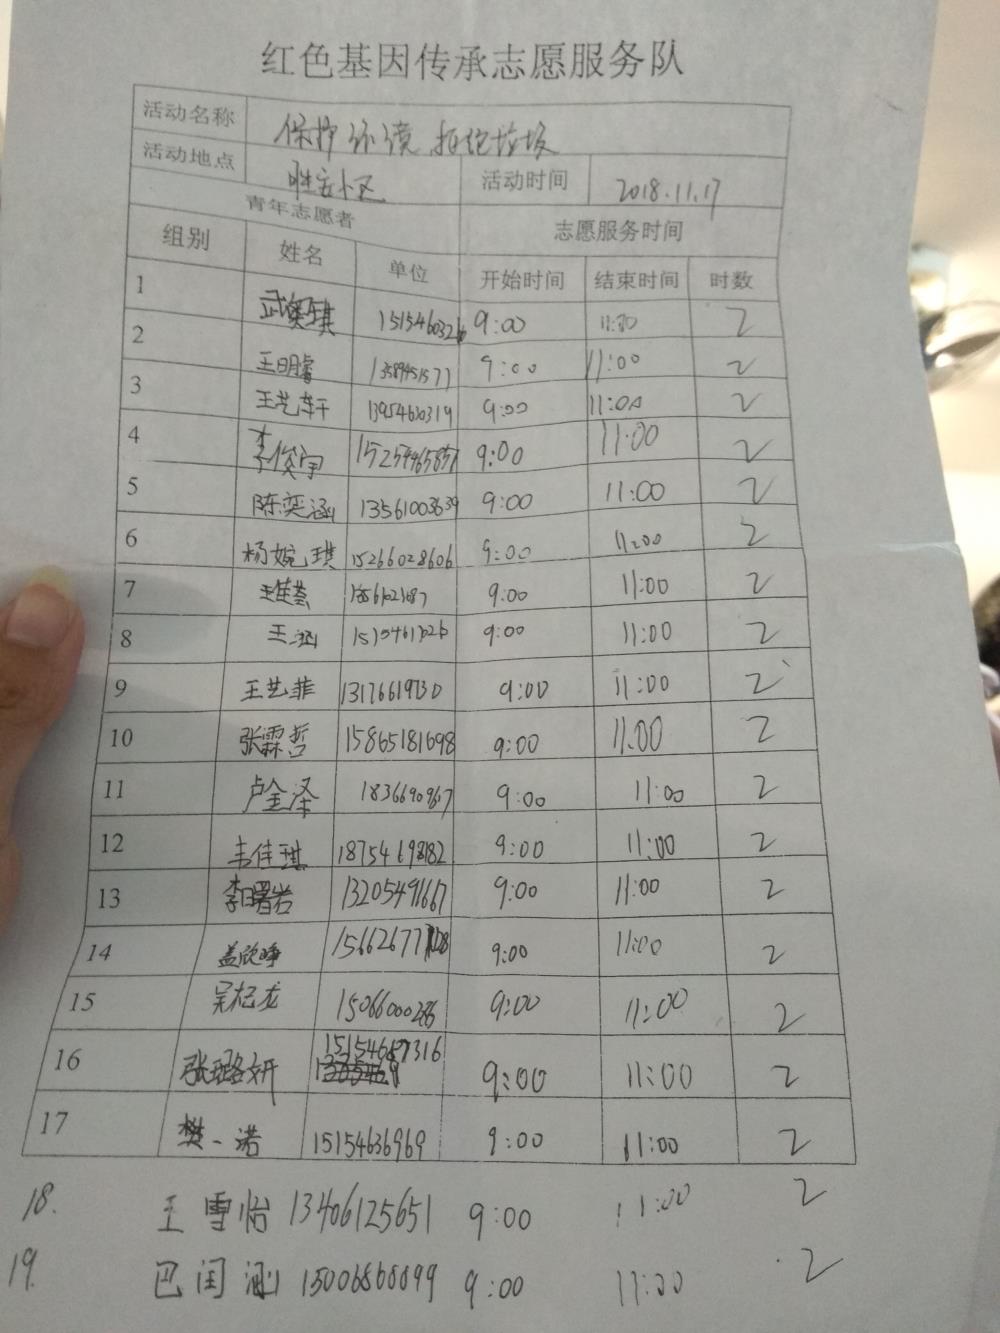 红色基因传承志愿服务队
活动名称 保护环境 拒绝垃圾
活动地点 胜宏小区 活动时间 2018.11.17
青年志愿者 志愿服务时间
组别 姓名 单位 开始时间 结束时间 时数
1 武奥琪 9:00 11:00 2
2 王明睿 9:00 11:00 2
3 王艺轩 13954630319 9:00 11:00 2
4 李俊宇 9:00 11:00 2
5 陈奕涵 13561003639 9:00 11:00 2
6 杨婉琪 15266028606 9:00 11:00 2
7 9:00 11:00 2
8 王涵 9:00 11:00 2
9 王艺菲 13176619730 9:00 11:00 2
10 张霖哲 15865181698 9:00 11:00 2
11 卢金泽 9:00 11:00 2
12 韦佳琪 18754698182 9:00 11:00 2
13 李曙岩 13205491667 9:00 11:00 2
14 盖欣峥 9:00 11:00 2
15 9:00 11:00 2
16 张璐妍 15154687316 9:00 11:00 2
17 樊一诺 15154636969 9:00 11:00 2
18. 王雪怡 13406125651 9:00 11:00 2
19. 巴闰涵 15006868899 9:00 11:00 2